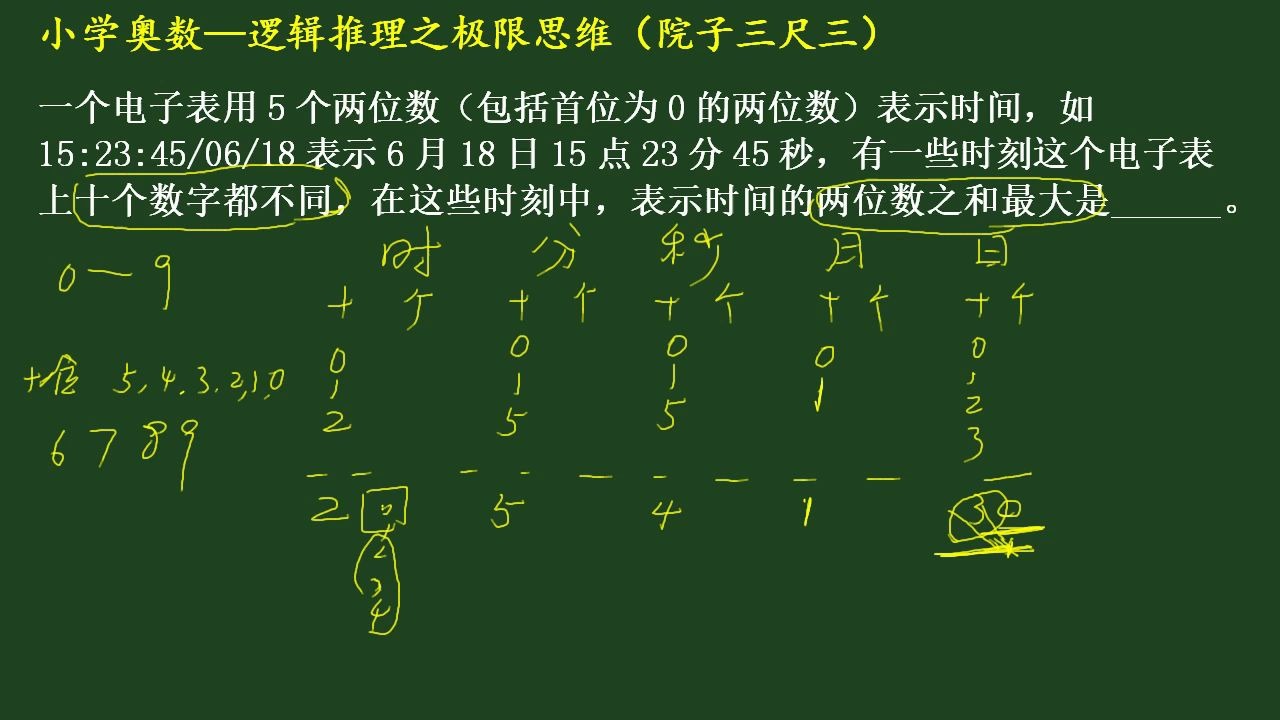 小学奥数—逻辑推理之极限思维（院子三尺三）
一个电子表用 5 个两位数（包括首位为 0 的两位数）表示时间，如
15:23:45/06/18 表示 6 月 18 日 15 点 23 分 45 秒，有一些时刻这个电子表
上十个数字都不同，在这些时刻中，表示时间的两位数之和最大是______。
时 分 秒 月 日
0—9
十 个 十 个 十 个 十 个 十 个
0 0 0 0 0
十位 5,4.3.2,1,0
1 1 1 1 1
2 5 5 2
6 7 8 9
3
2 5 4 1 3
2
3
4